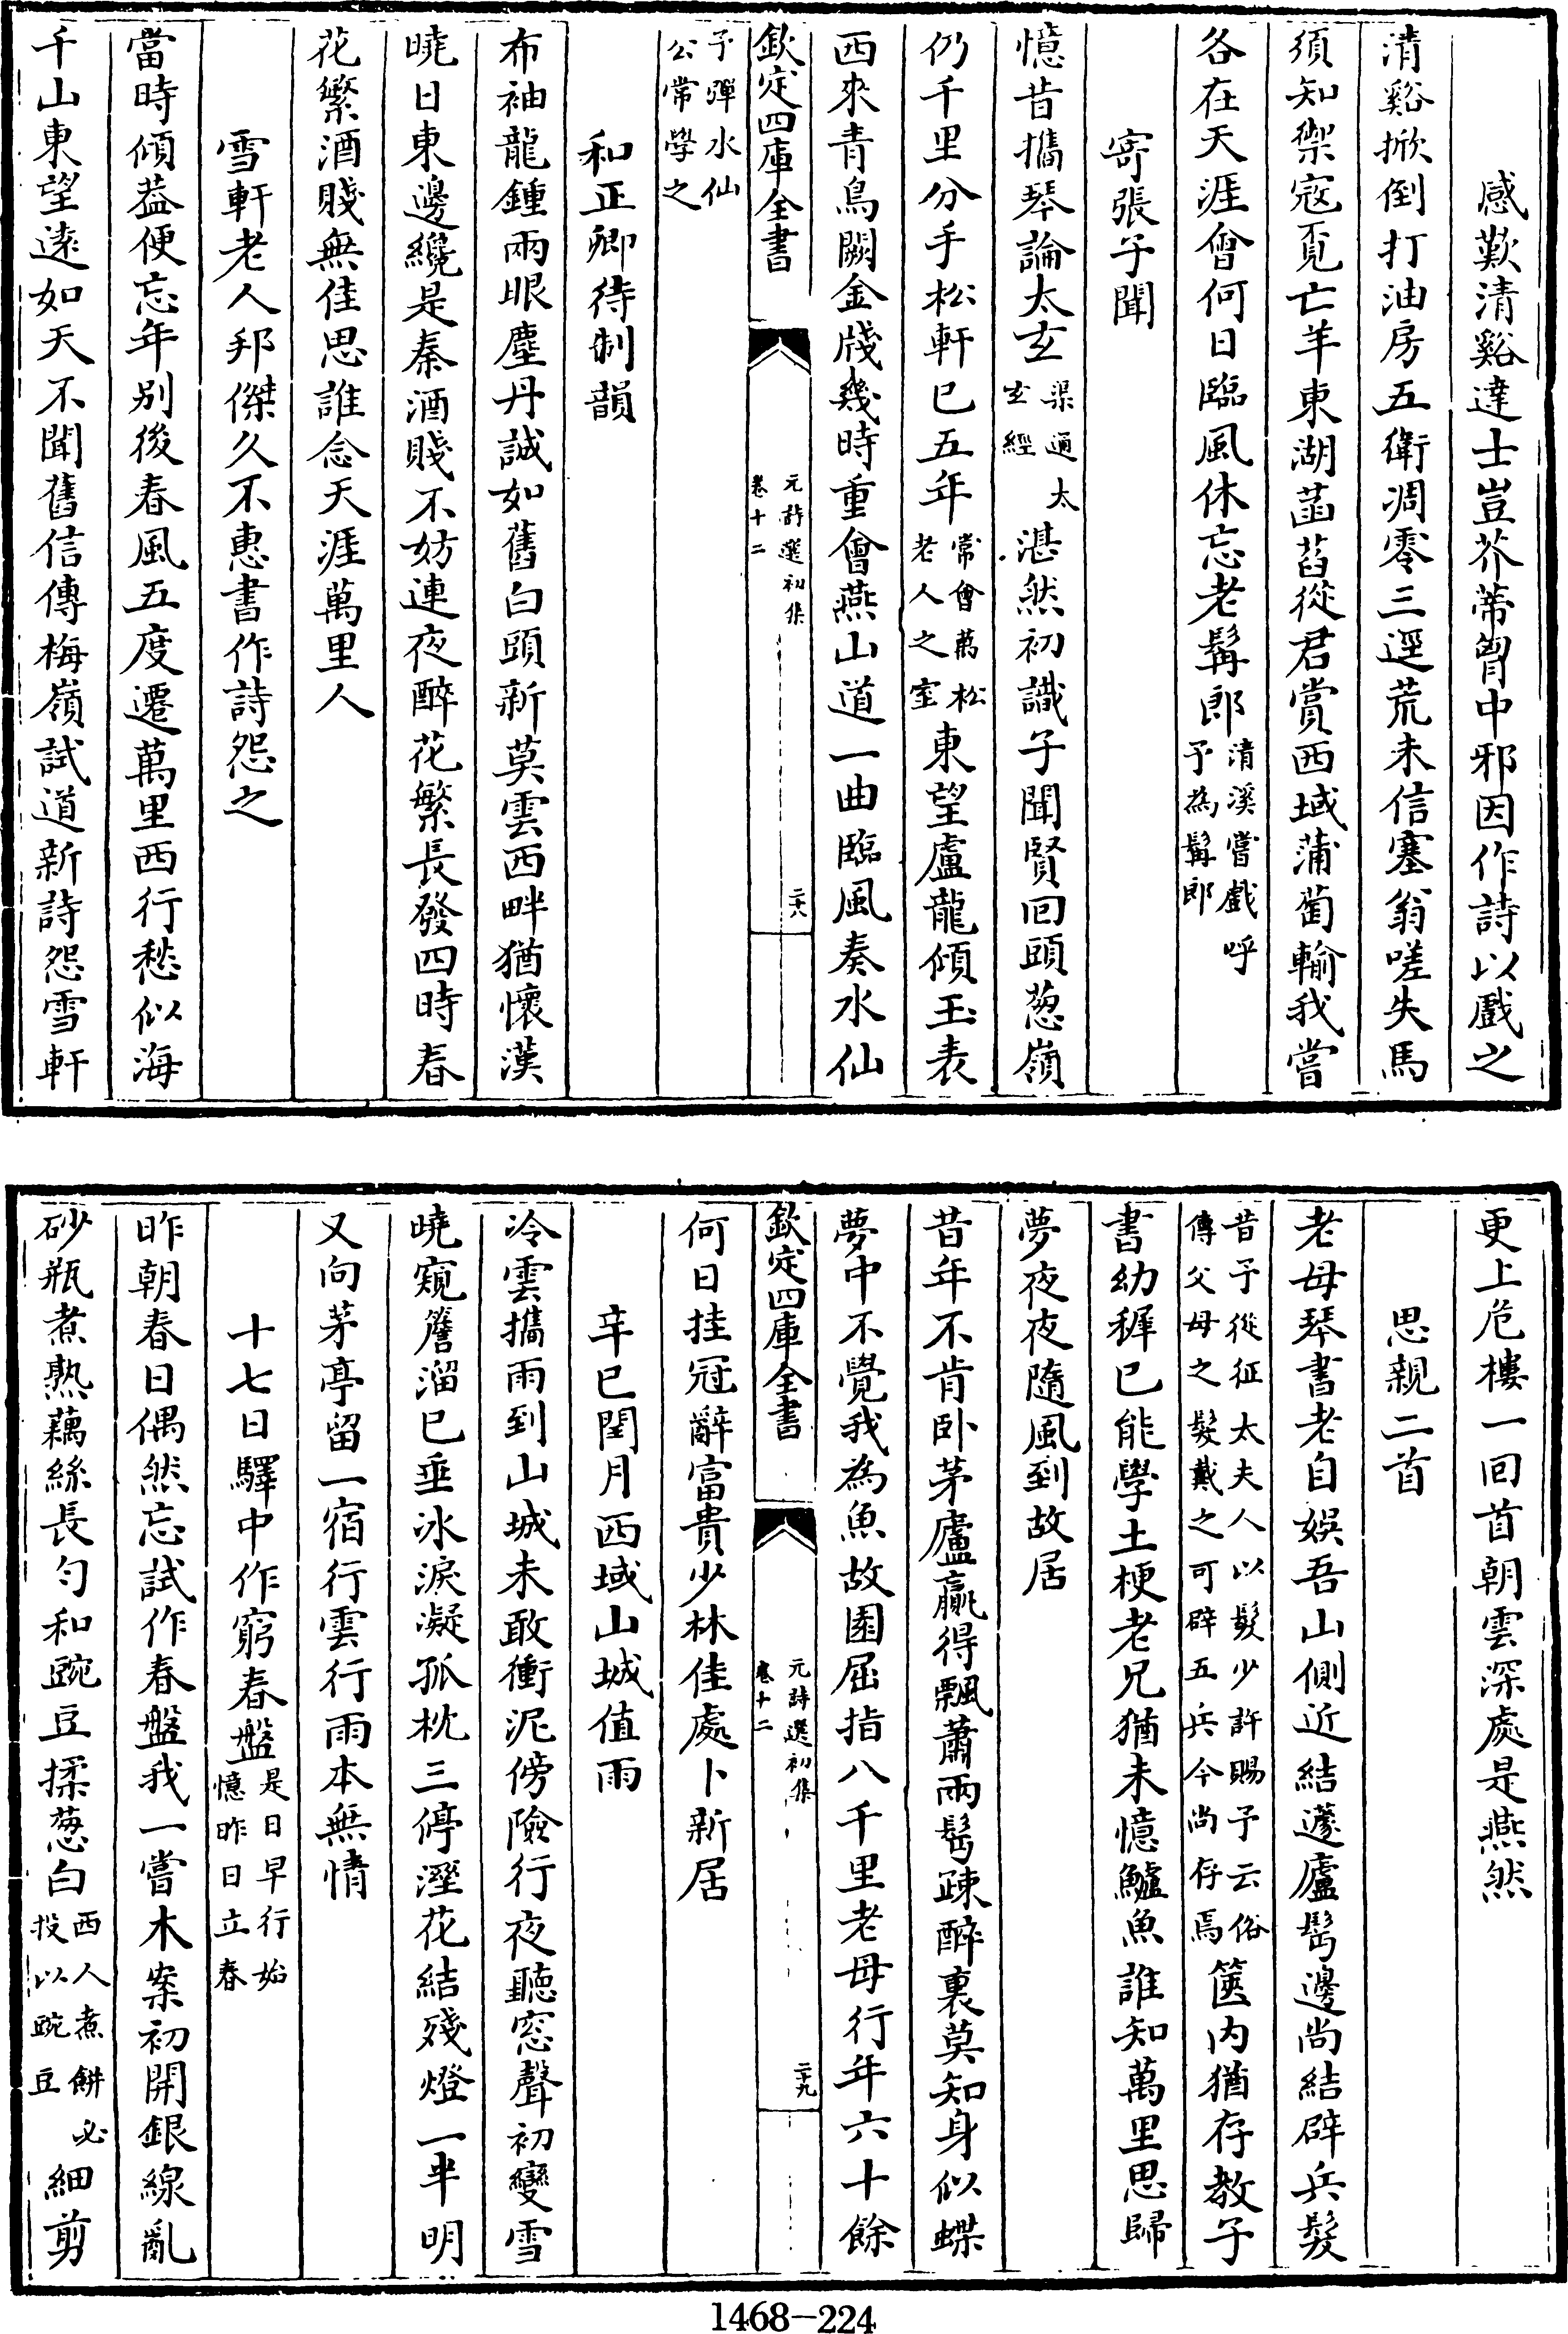 感歎清谿達士豈芥蒂胷中邪因作詩以戲之
清谿掀倒打油房五衛凋零三逕荒未信塞翁嗟失馬
須知禦寇覓亡羊東湖菡萏從君賞西域蒲萄輸我嘗
各在天涯會何日臨風休忘老髯郎清溪嘗戲呼予為髯郎
寄張子聞
憶昔攜琴論太玄渠通太玄經湛然初識子聞賢回頭葱嶺
仍千里分手松軒已五年常會萬松老人之室東望盧龍傾玉表
西來青鳥闕金牋幾時重會燕山道一曲臨風奏水仙
欽定四庫全書
元詩選初集
卷十二
二十八
予彈水仙公常學之
和正卿待制韻
布袖龍鍾兩眼塵丹誠如舊白頭新莫雲西畔猶懷漢
曉日東邊纔是秦酒賤不妨連夜醉花繁長發四時春
花繁酒賤無佳思誰念天涯萬里人
雪軒老人邦傑久不惠書作詩怨之
當時傾葢便忘年别後春風五度遷萬里西行愁似海
千山東望遠如天不聞舊信傳梅嶺試道新詩怨雪軒
更上危樓一回首朝雲深處是燕然
思親二首
老母琴書老自娛吾山側近結蘧廬髩邊尚結辟兵髮
昔予從征太夫人以髮少許賜予云俗傳父母之髮戴之可辟五兵今尚存焉篋内猶存教子
書幼穉已能學土梗老兄猶未憶鱸魚誰知萬里思歸
夢夜夜隨風到故居
昔年不肯卧茅廬贏得飄蕭兩髩疎醉裏莫知身似蝶
夢中不覺我為魚故園屈指八千里老母行年六十餘
欽定四庫全書
元詩選初集
卷十二
二十九
何日挂冠辭富貴少林佳處卜新居
辛巳閏月西域山城值雨
冷雲攜雨到山城未敢衝泥傍險行夜聽窓聲初變雪
曉窺簷溜已垂冰淚凝孤枕三停溼花結殘燈一半明
又向茅亭留一宿行雲行雨本無情
十七日驛中作窮春盤是日早行始憶昨日立春
昨朝春日偶然忘試作春盤我一嘗木案初開銀線亂
砂瓶煮熟藕絲長匀和豌豆揉葱白西人煮餅必投以豌豆細剪
1468-224